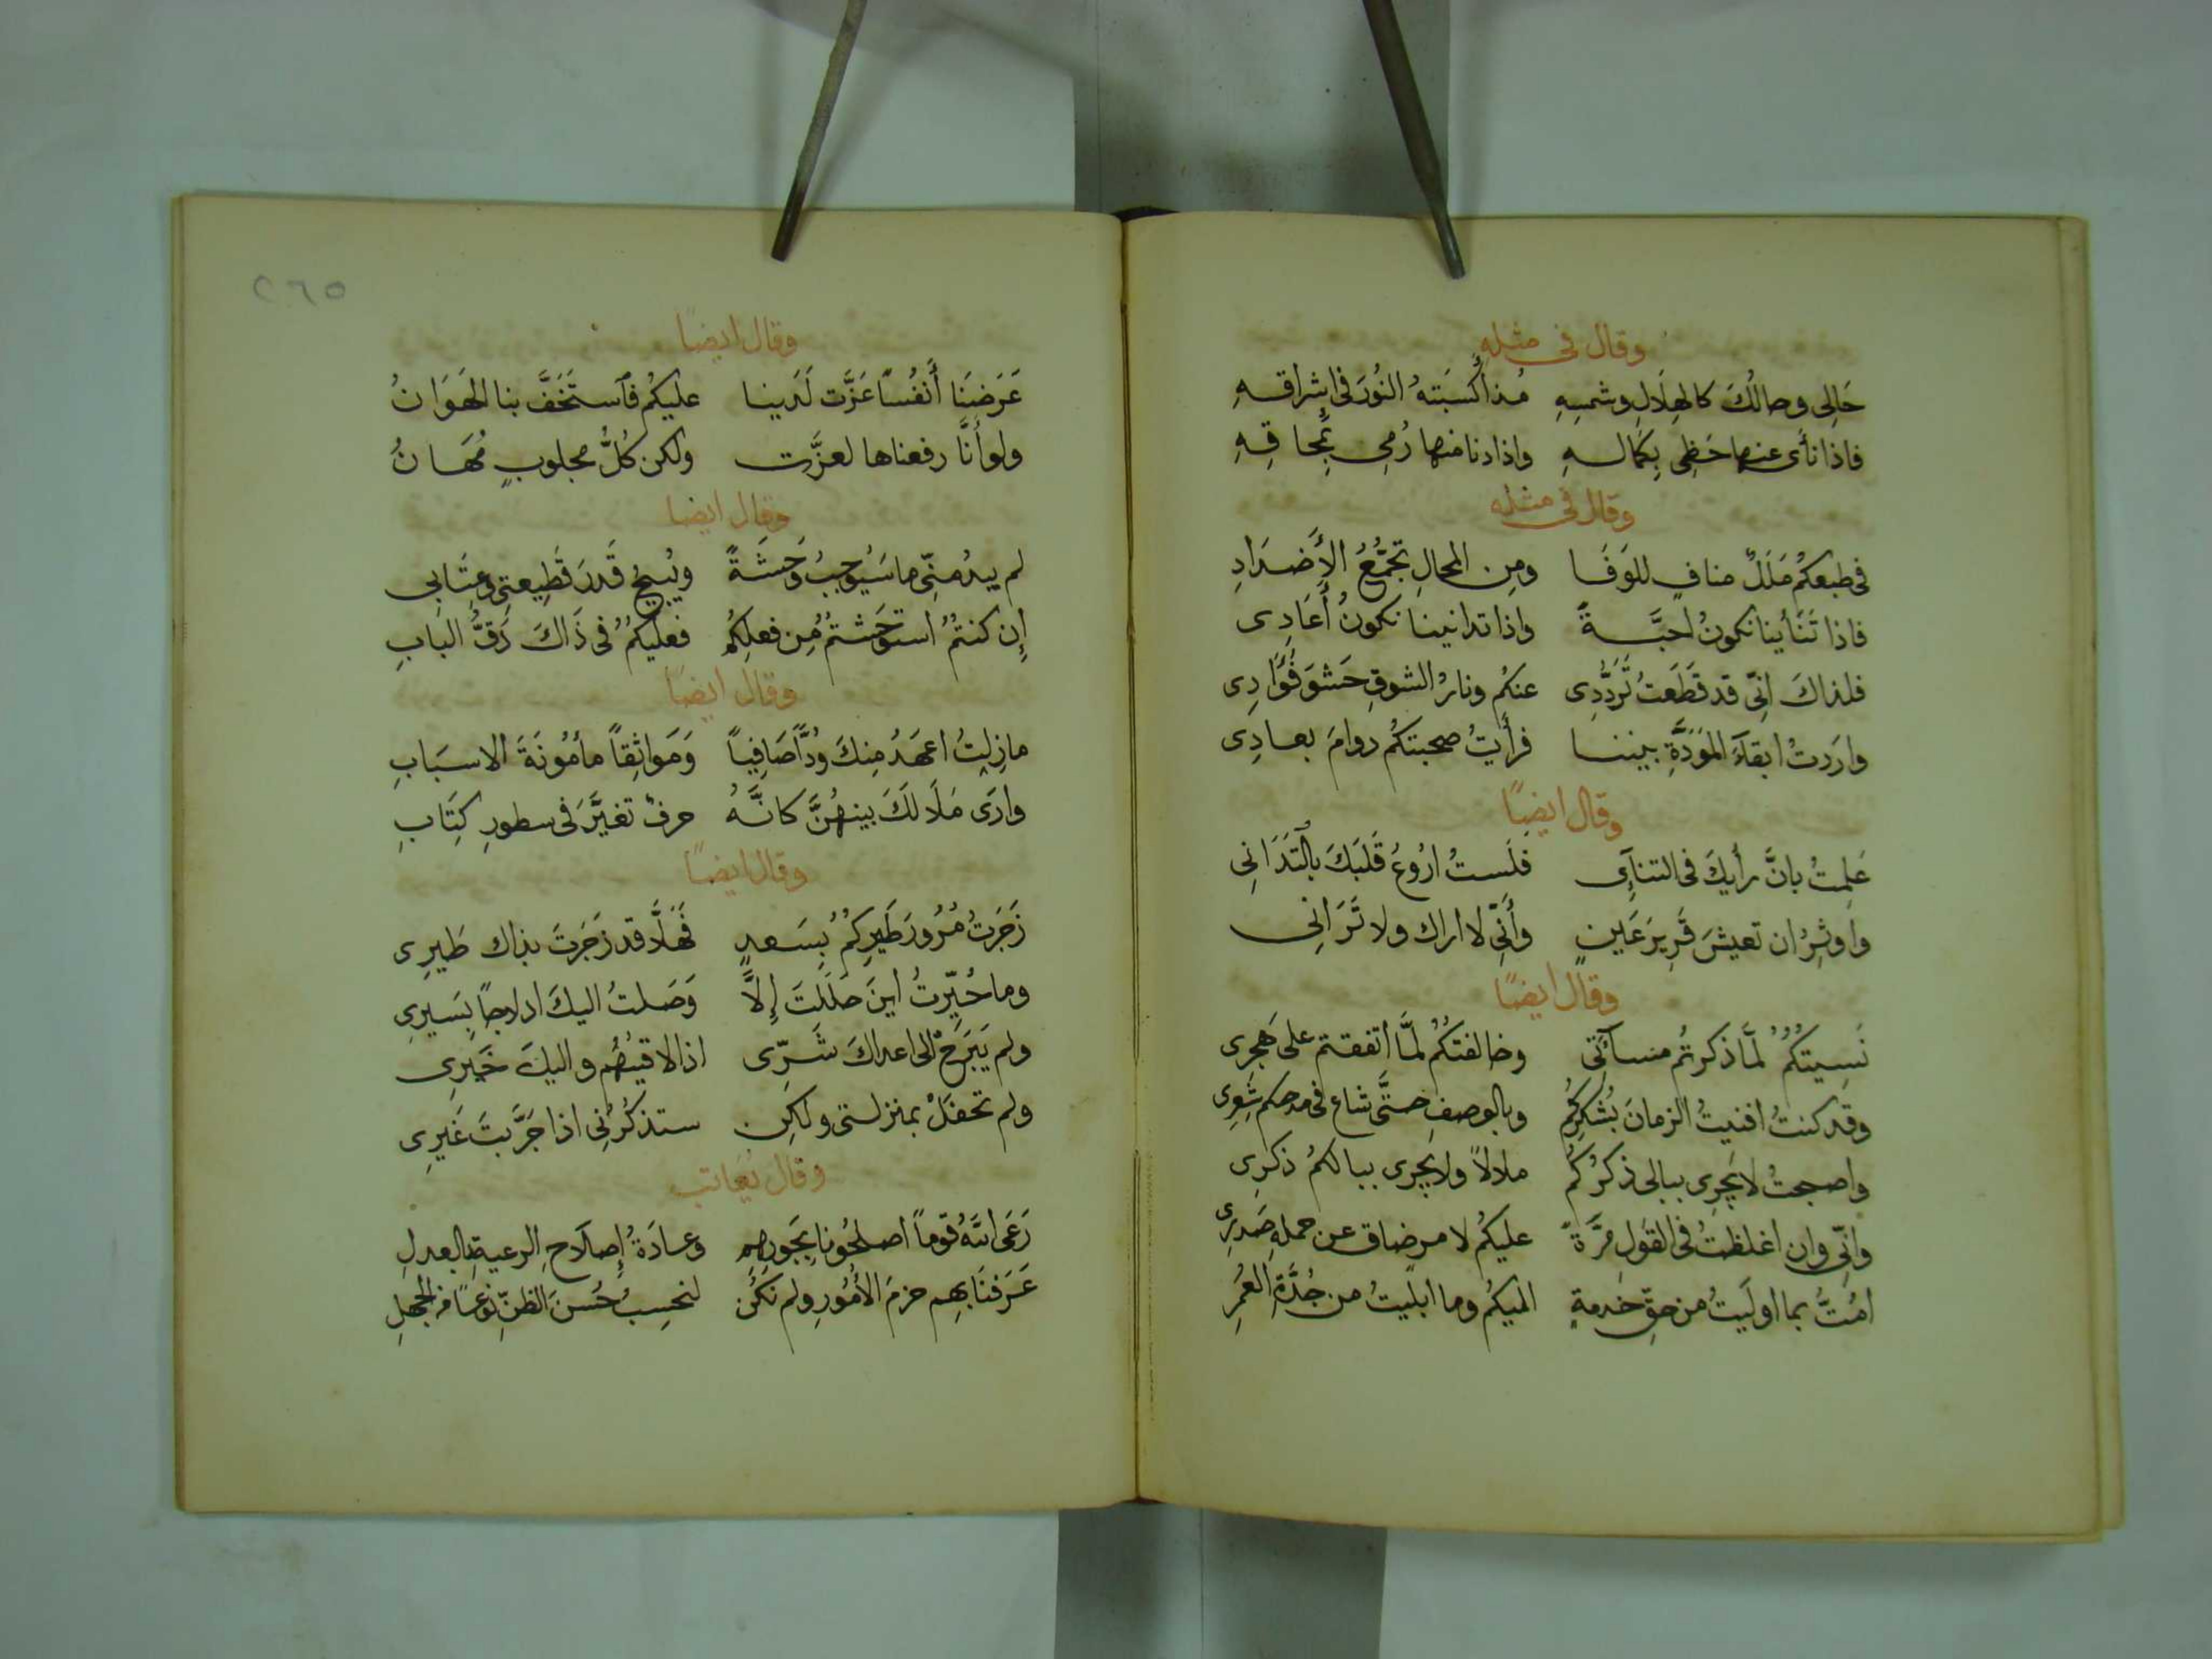 وقال في مثله
حَالِي وحالُكَ كالهِلَالِ وشمسِهِ مُذ أكسَبَتهُ النُورَ في إشراقهِ
فاذا نأى عنها حَظِي بِكمالهِ واذا دنا منها رُمِي بِمحاقِهِ
وقال في مثله
في طبعكُم مَلَلٌ منافٍ للوَفَا ومِن المحالِ تجمُّعُ الأَضدَادِ
فاذا تَنَأينا نكونُ احبَّةً واذا تدانينا نكونُ أَعَادِي
فلذاكَ انِّي قد قَطَعتُ تَرَدُّدِي عنكُم ونارُ الشوقِ حَشوَ فُؤَادِي
واردتُ ابقآءَ المَوَدَّةِ بيننا فرأيتُ صحبتكُم دوامَ بعادِي
وقال ايضًا
عَلِمتُ بانَّ رأيكَ في التنآءِي فلَستُ ارُوعُ قَلبَكَ بالتَدَانِي
واوثِرُ ان تعيشَ قَرِيرَ عَينٍ وأَنِّي لا اراك ولا تَرَانِي
وقال ايضًا
نَسِيتُكُمُ لمَّا ذكرتُم مسآئتي وخالفتُكُم لمَّا اتفقتم على هَجرِي
وقد كنتُ افنيتُ الزمانَ بشُكرِكُم وبالوصفِ حتَّى شاع في مدحكم شِعرِي
واصبحتُ لا يَجرِي ببالي ذكرُكُم ملالاً ولا يجرِي ببالكمُ ذكرِي
وانِّي وان اغلظتُ في القَولِ مَرَّةً عليكُم لامرٍ ضاق عن حملهِ صَدرِي
امُتُّ بما اوليتُ من حقِّ خدمةٍ اليكُم وما ابليتُ من جُدَّةِ العُمرِ
٢٦٥
وقال ايضًا
عَرَضنَا أَنفُسًا عَزَّت لَدَينا عليكُم فاستَخَفَّ بنا الهَوَانُ
ولو أَنَّا رفعناها لعزَّت ولكن كُلُّ مجلوبٍ مُهَانُ
وقال ايضا
لم يبدُ منِّي ما سَيُوجِبُ وَحشَةً ويُبيحُ قَدرَ قَطِيعتِي وعِتَابي
إن كنتُمُ استوحَشتُمُ مِن فعلِكُم فعليكُمُ في ذَاكَ دَقُّ البابِ
وقال ايضًا
مازلتُ اعهَدُ مِنكَ وُدًّا صَافِياً وَمَواثِقاً مأمُونَةَ الاسبَابِ
وارَى مَلَالَكَ بينهُنَّ كانَّهُ حرفٌ تغيَّرَ في سطورِ كِتَابِ
وقال ايضًا
زَجَرتُ مُرُورَ طَيرِكُمُ بِسَعدٍ فَهَلَّا قد زَجَرتَ بذاك طَيرِي
وما حُيِّرتُ اينَ حلَلتَ إلَّا وَصَلتُ اليكَ ادلاجًا بِسَيرِي
ولم يَبرَح الى اعداكَ شَرِّي اذا لاقيتُهُم واليكَ خَيرِي
ولم تحفَلْ بمنزلتي ولكِن ستذكُرُنِي اذا جَرَّبتَ غَيرِي
وقال يعاتب
رَعَى اللهُ قوماً اصلحُونا بجَورِهِم وعادَةُ إصلَاحِ الرعيةِ بالعدلِ
عَرَفنَا بهِم حزمَ الأُمُورِ ولم نكُن لنحسِبُ حُسنَ الظنِّ نوعًا من الجهلِ